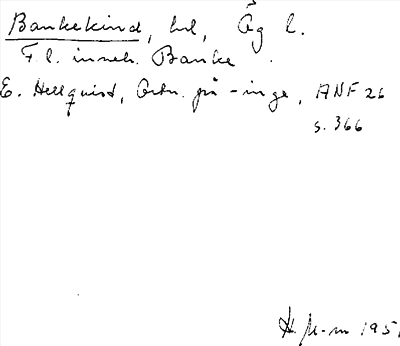 Bankekind, hd, Ög l.
F. l. inneh. Banke
E. Hellquist, Ortn. på -inge, ANF 26
s. 366
H. st-m 195